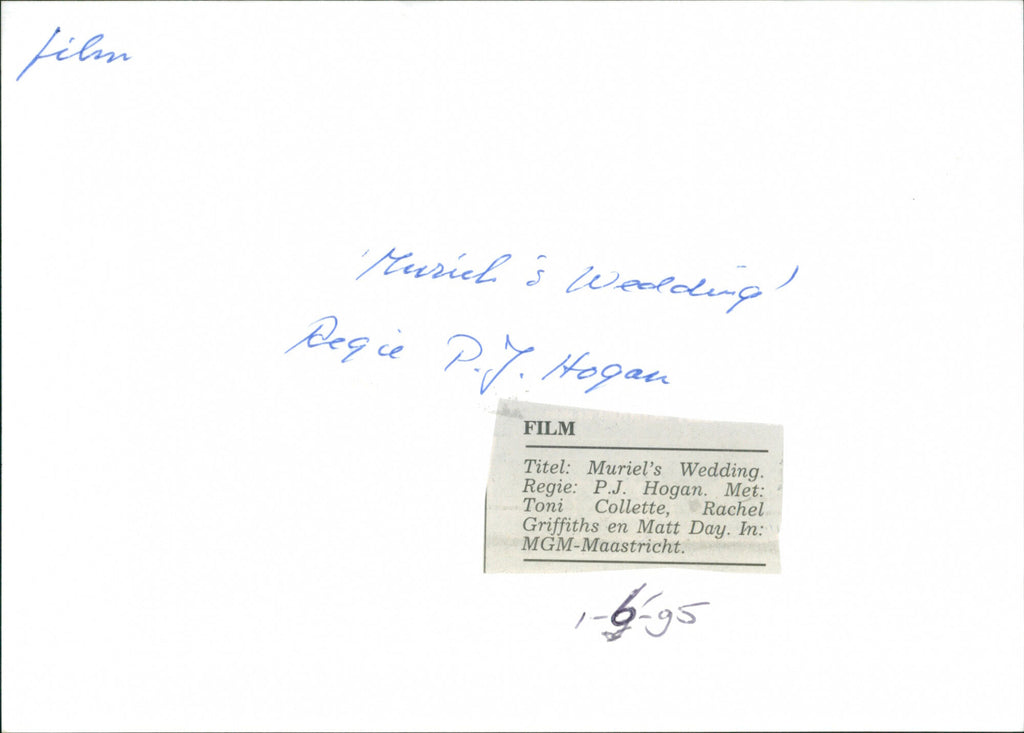 film
'Muriel's Wedding'
Regie P.J. Hogan
FILM
Titel: Muriel's Wedding.
Regie: P.J. Hogan. Met:
Toni Collette, Rachel
Griffiths en Matt Day. In:
MGM-Maastricht.
1-6-'95